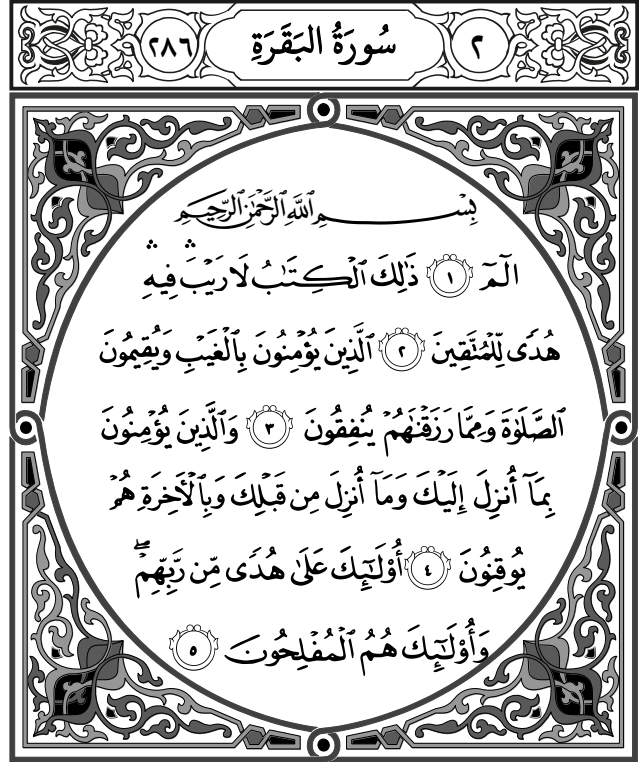 ٢ سُورَةُ البَقَرَةِ ٢٨٦
بِسْمِ ٱللَّهِ ٱلرَّحْمَٰنِ ٱلرَّحِيمِ
الٓمٓ ١ ذَٰلِكَ ٱلْكِتَٰبُ لَا رَيْبَ ۛ فِيهِ ۛ
هُدًى لِّلْمُتَّقِينَ ٢ ٱلَّذِينَ يُؤْمِنُونَ بِٱلْغَيْبِ وَيُقِيمُونَ
ٱلصَّلَوٰةَ وَمِمَّا رَزَقْنَٰهُمْ يُنفِقُونَ ٣ وَٱلَّذِينَ يُؤْمِنُونَ
بِمَآ أُنزِلَ إِلَيْكَ وَمَآ أُنزِلَ مِن قَبْلِكَ وَبِٱلْأَخِرَةِ هُمْ
يُوقِنُونَ ٤ أُو۟لَٰٓئِكَ عَلَىٰ هُدًى مِّن رَّبِّهِمْ ۖ
وَأُو۟لَٰٓئِكَ هُمُ ٱلْمُفْلِحُونَ ٥